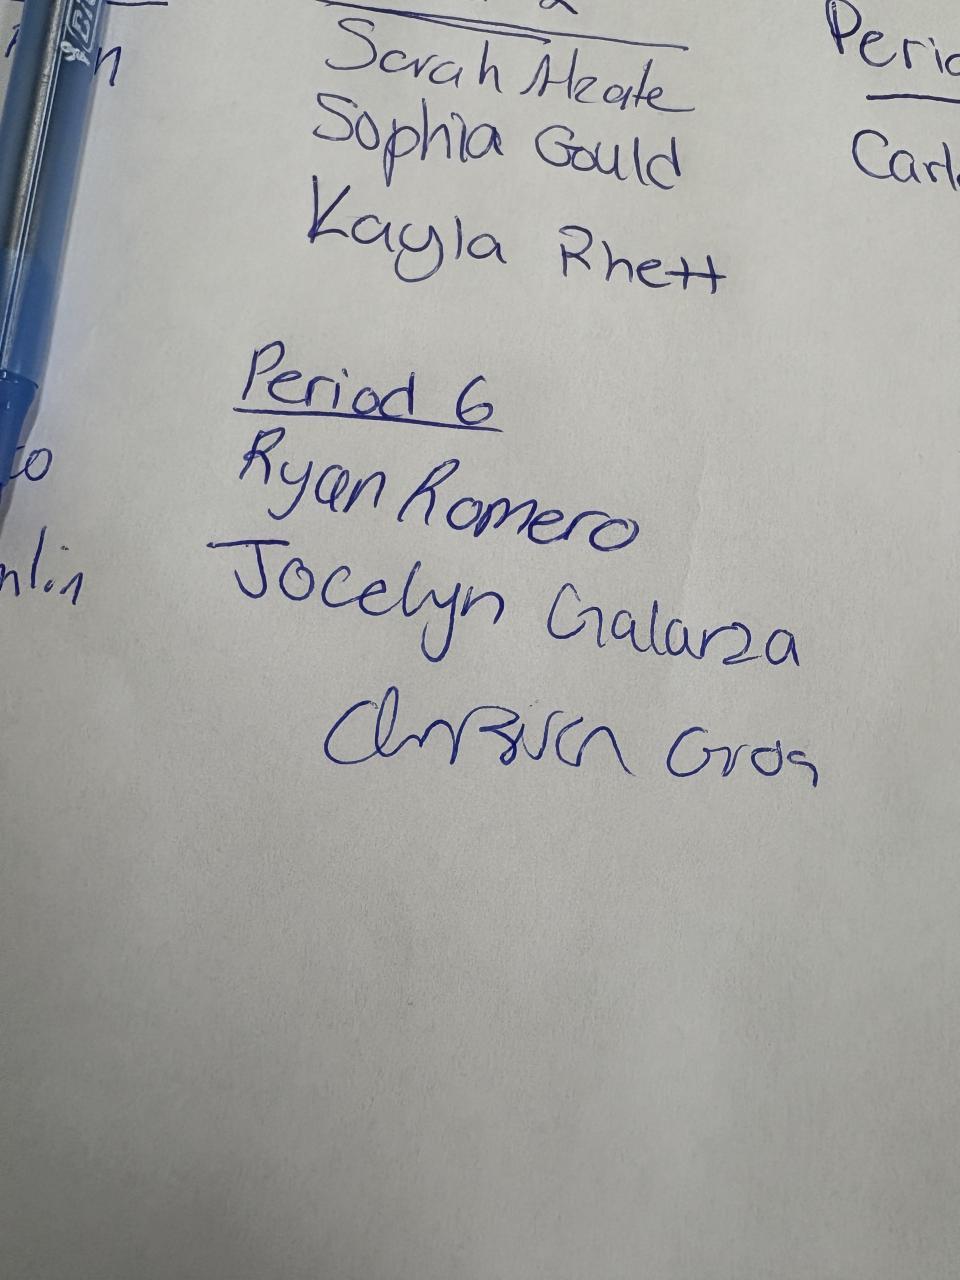 2
Sarah Alzate
Sophia Gould
Kayla Rhett
Period 6
Ryan Romero
Jocelyn Galarza
Gros
Perio
Carl
co
nlin
n